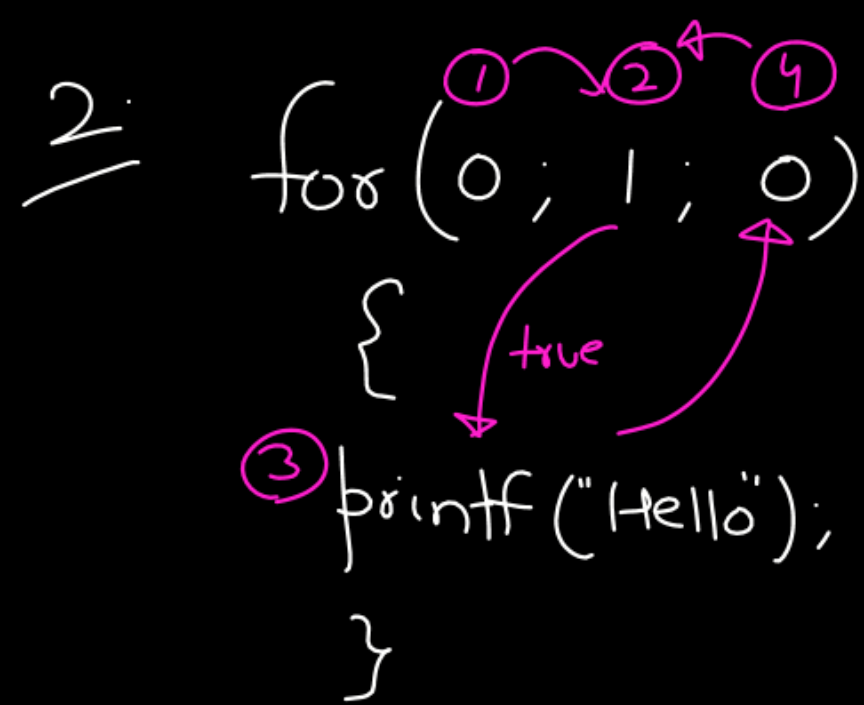 1 2 4
2. for (0 ; 1 ; 0)
{
true
3 printf ("Hello");
}